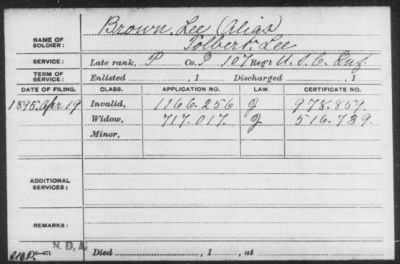 NAME OF SOLDIER: Brown, Lee (Alias
Tolbert, Lee
SERVICE: Late rank, P Co. D 107 Reg't U.S.C. Inf.
TERM OF SERVICE: Enlisted , 1 Discharged , 1
DATE OF FILING. CLASS. APPLICATION NO. LAW. CERTIFICATE NO.
1895 Apr. 19 Invalid, 1166.256 J 978.857.
Widow, 717.017. J 516.739
Minor,
ADDITIONAL SERVICES:
REMARKS:
N.D.A.
Died , 1 , at